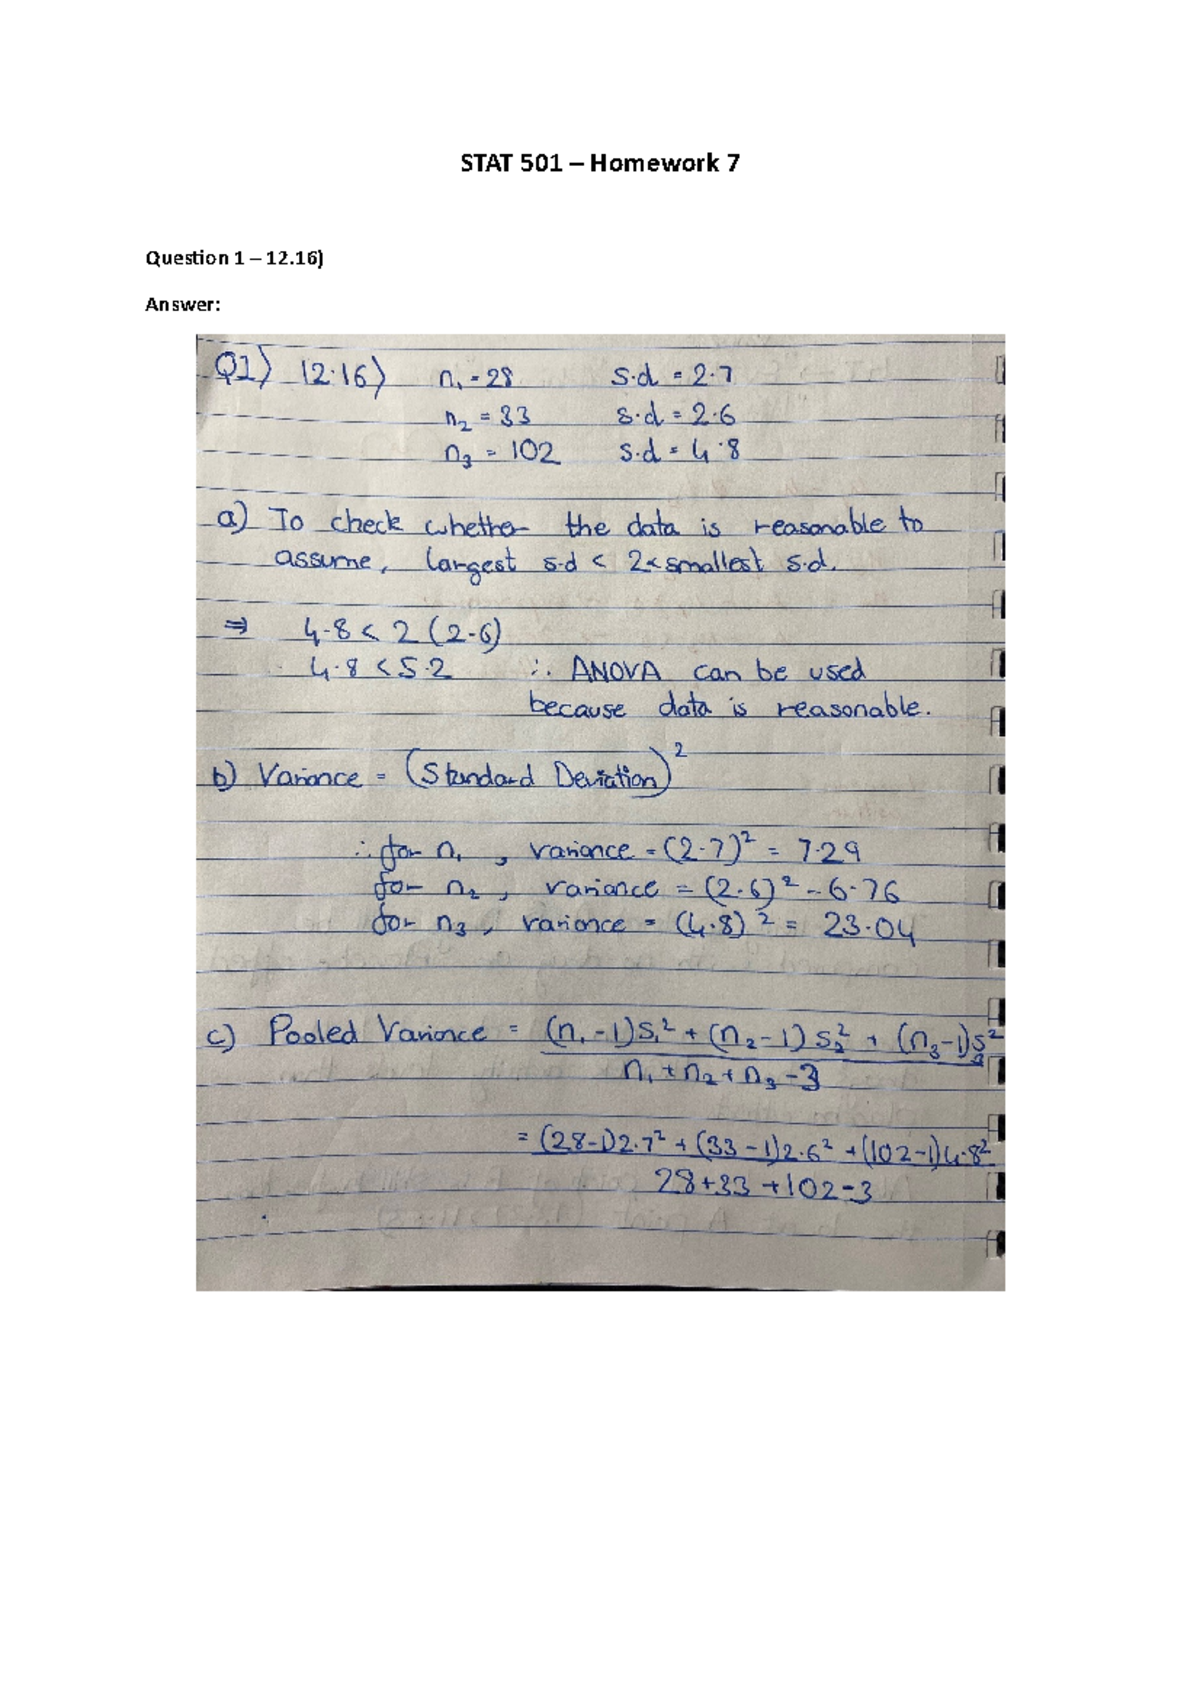 STAT 501 – Homework 7
Question 1 – 12.16)
Answer:
Q1) 12.16) n₁ = 28 s.d = 2.7
n₂ = 33 s.d = 2.6
n₃ = 102 s.d = 4.8
a) To check whether the data is reasonable to
assume, largest s.d < 2×smallest s.d.
⇒ 4.8 < 2 (2.6)
4.8 < 5.2 ∴ ANOVA can be used
because data is reasonable.
b) Variance = (Standard Deviation)²
∴ for n₁ , variance = (2.7)² = 7.29
for n₂ , variance = (2.6)² = 6.76
for n₃ , variance = (4.8)² = 23.04
c) Pooled Variance = (n₁ -1)s₁² + (n₂ - 1) s₂² + (n₃ -1)s₃²
n₁ + n₂ + n₃ - 3
= (28-1)2.7² + (33 - 1)2.6² + (102 -1)4.8²
28+33 +102 - 3